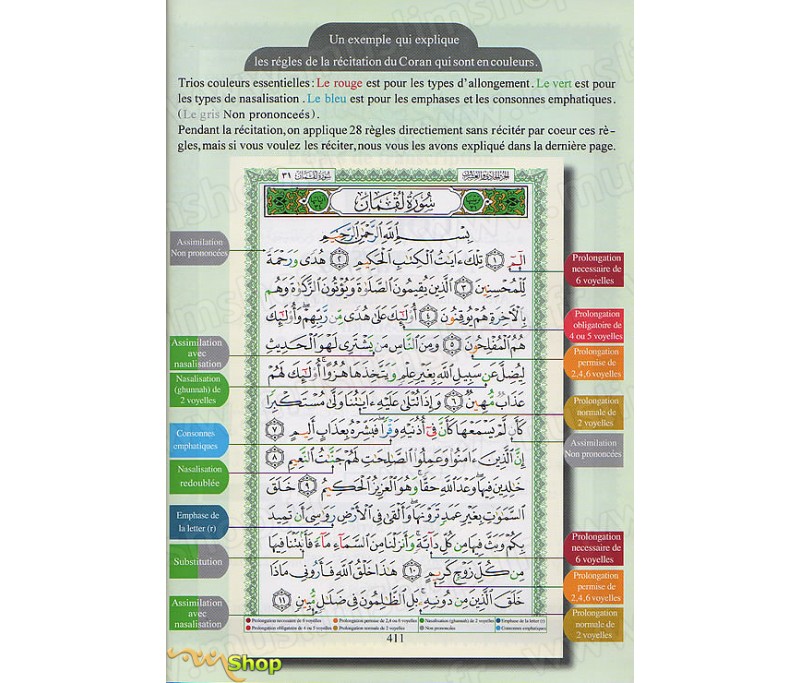 Un exemple qui explique
les régles de la récitation du Coran qui sont en couleurs.
Trios couleurs essentielles: Le rouge est pour les types d'allongement. Le vert est pour
les types de nasalisation. Le bleu est pour les emphases et les consonnes emphatiques.
(Le gris Non prononceés).
Pendant la récitation, on applique 28 règles directement sans récitér par coeur ces rè-
gles, mais si vous voulez les réciter, nous vous les avons expliqué dans la dernière page.
سُورَةُ لُقْمَان ٣١
الجزء الحادي والعشرون
سُورَةُ لُقْمَان
بِسْمِ اللَّهِ الرَّحْمَٰنِ الرَّحِيمِ
الٓمٓ ١ تِلْكَ ءَايَٰتُ الْكِتَٰبِ الْحَكِيمِ ٢ هُدًى وَرَحْمَةً
لِّلْمُحْسِنِينَ ٣ الَّذِينَ يُقِيمُونَ الصَّلَوٰةَ وَيُؤْتُونَ الزَّكَوٰةَ وَهُم
بِالْءَاخِرَةِ هُمْ يُوقِنُونَ ٤ أُوْلَٰٓئِكَ عَلَىٰ هُدًى مِّن رَّبِّهِمْ وَأُوْلَٰٓئِكَ
هُمُ الْمُفْلِحُونَ ٥ وَمِنَ النَّاسِ مَن يَشْتَرِى لَهْوَ الْحَدِيثِ
لِيُضِلَّ عَن سَبِيلِ اللَّهِ بِغَيْرِ عِلْمٍ وَيَتَّخِذَهَا هُزُوًا أُوْلَٰٓئِكَ لَهُمْ
عَذَابٌ مُّهِينٌ ٦ وَإِذَا تُتْلَىٰ عَلَيْهِ ءَايَٰتُنَا وَلَّىٰ مُسْتَكْبِرًا
كَأَن لَّمْ يَسْمَعْهَا كَأَنَّ فِىٓ أُذُنَيْهِ وَقْرًا فَبَشِّرْهُ بِعَذَابٍ أَلِيمٍ ٧
إِنَّ الَّذِينَ ءَامَنُوا۟ وَعَمِلُوا۟ الصَّٰلِحَٰتِ لَهُمْ جَنَّٰتُ النَّعِيمِ ٨
خَٰلِدِينَ فِيهَا وَعْدَ اللَّهِ حَقًّا وَهُوَ الْعَزِيزُ الْحَكِيمُ ٩ خَلَقَ
السَّمَٰوَٰتِ بِغَيْرِ عَمَدٍ تَرَوْنَهَا وَأَلْقَىٰ فِى الْأَرْضِ رَوَٰسِىَ أَن تَمِيدَ
بِكُمْ وَبَثَّ فِيهَا مِن كُلِّ دَآبَّةٍ وَأَنزَلْنَا مِنَ السَّمَآءِ مَآءً فَأَنۢبَتْنَا فِيهَا
مِن كُلِّ زَوْجٍ كَرِيمٍ ١٠ هَٰذَا خَلْقُ اللَّهِ فَأَرُونِى مَاذَا
خَلَقَ الَّذِينَ مِن دُونِهِ بَلِ الظَّٰلِمُونَ فِى ضَلَٰلٍ مُّبِينٍ ١١
Assimilation
Non prononcées
Assimilation
avec
nasalisation
Nasalisation
(ghunnah) de
2 voyelles
Consonnes
emphatiques
Nasalisation
redoublée
Emphase de
la letter (r)
Substitution
Assimilation
avec
nasalisation
Prolongation
necessaire de
6 voyelles
Prolongation
obligatoire de
4 ou 5 voyelles
Prolongation
permise de
2,4,6 voyelles
Prolongation
normale de
2 voyelles
Assimilation
Non prononcées
Prolongation
necessaire de
6 voyelles
Prolongation
permise de
2,4,6 voyelles
Prolongation
normale de
2 voyelles
Prolongation necessaire de 6 voyelles Prolongation permise de 2,4 ou 6 voyelles Nasalisation (ghunnah) de 2 voyelles Emphase de la letter (r)
Prolongation obligatoire de 4 ou 5 voyelles Prolongation normale de 2 voyelles Non prononcées Consonnes emphatiques
411
Shop